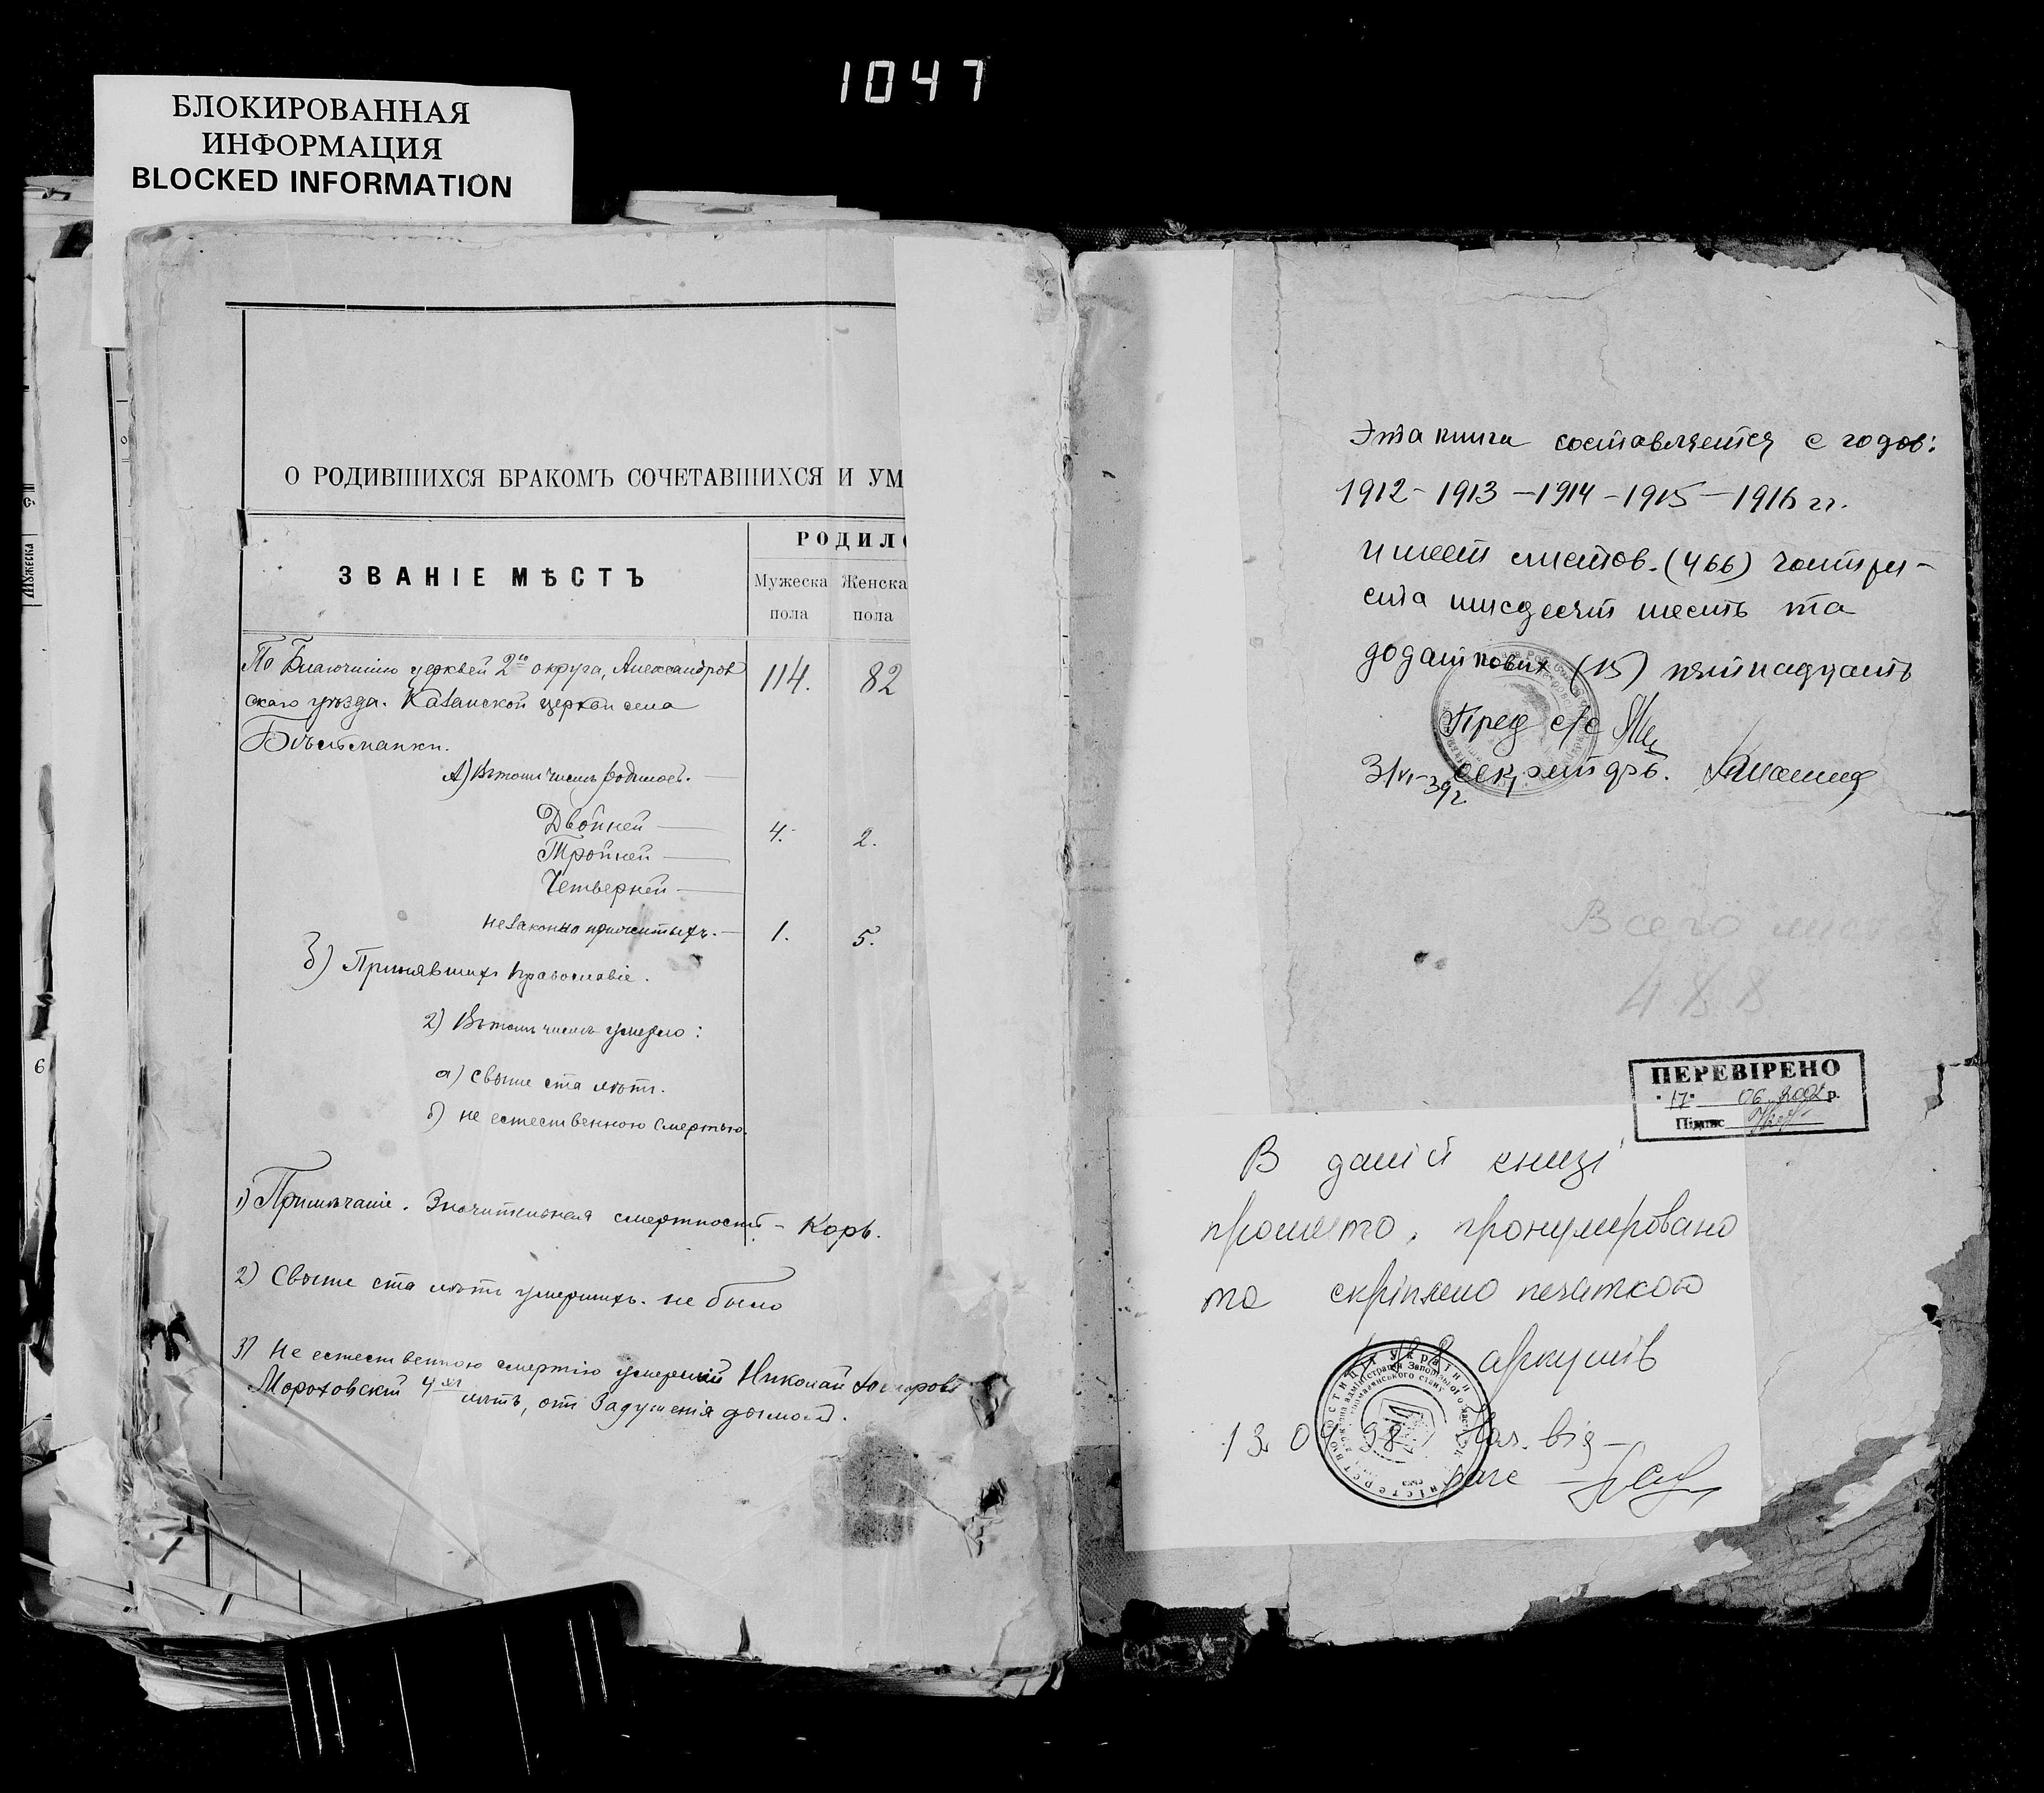 1047
БЛОКИРОВАННАЯ
ИНФОРМАЦИЯ
BLOCKED INFORMATION
О РОДИВШИХСЯ БРАКОМЪ СОЧЕТАВШИХСЯ И УМ
ЗВАНІЕ МѢСТЪ
РОДИЛ
Мужеска Женска
пола пола
По Благочинію церквей 2го округа, Александров 114. 82
скаго уѣзда. Казанской церкви села
А) Въ томъ числѣ родилось.
Двойней 4. 2.
Тройней
Четверней
незаконно прижитыхъ. 1. 5.
Б) Принявшихъ православіе.
2) Въ томъ числѣ умерло:
а) свыше ста лѣтъ.
б) не естественною смертью.
1) Примѣчаніе. Значительная смертность - Корь.
2) Свыше ста лѣтъ умершихъ. не было
3) Не естественною смертію умерший Николай
Мороховскій 4хъ лѣтъ, отъ задушенія дымомъ.
МУжеска
6
Эта книга составляется с годов:
1912 - 1913 - 1914 - 1915 - 1916 гг.
имеет листов. (466) чотыри-
ста шисдесят шесть та
додаткових (15) пятнадцать
Пред с/с
секретарь.
Всего листов
488
ПЕРЕВІРЕНО
"17" 06 2002 р.
Підпис
В даній книзі
прошито, пронумеровано
та скріплено печаткою
488 аркушів
13 0 98 Нач. від-